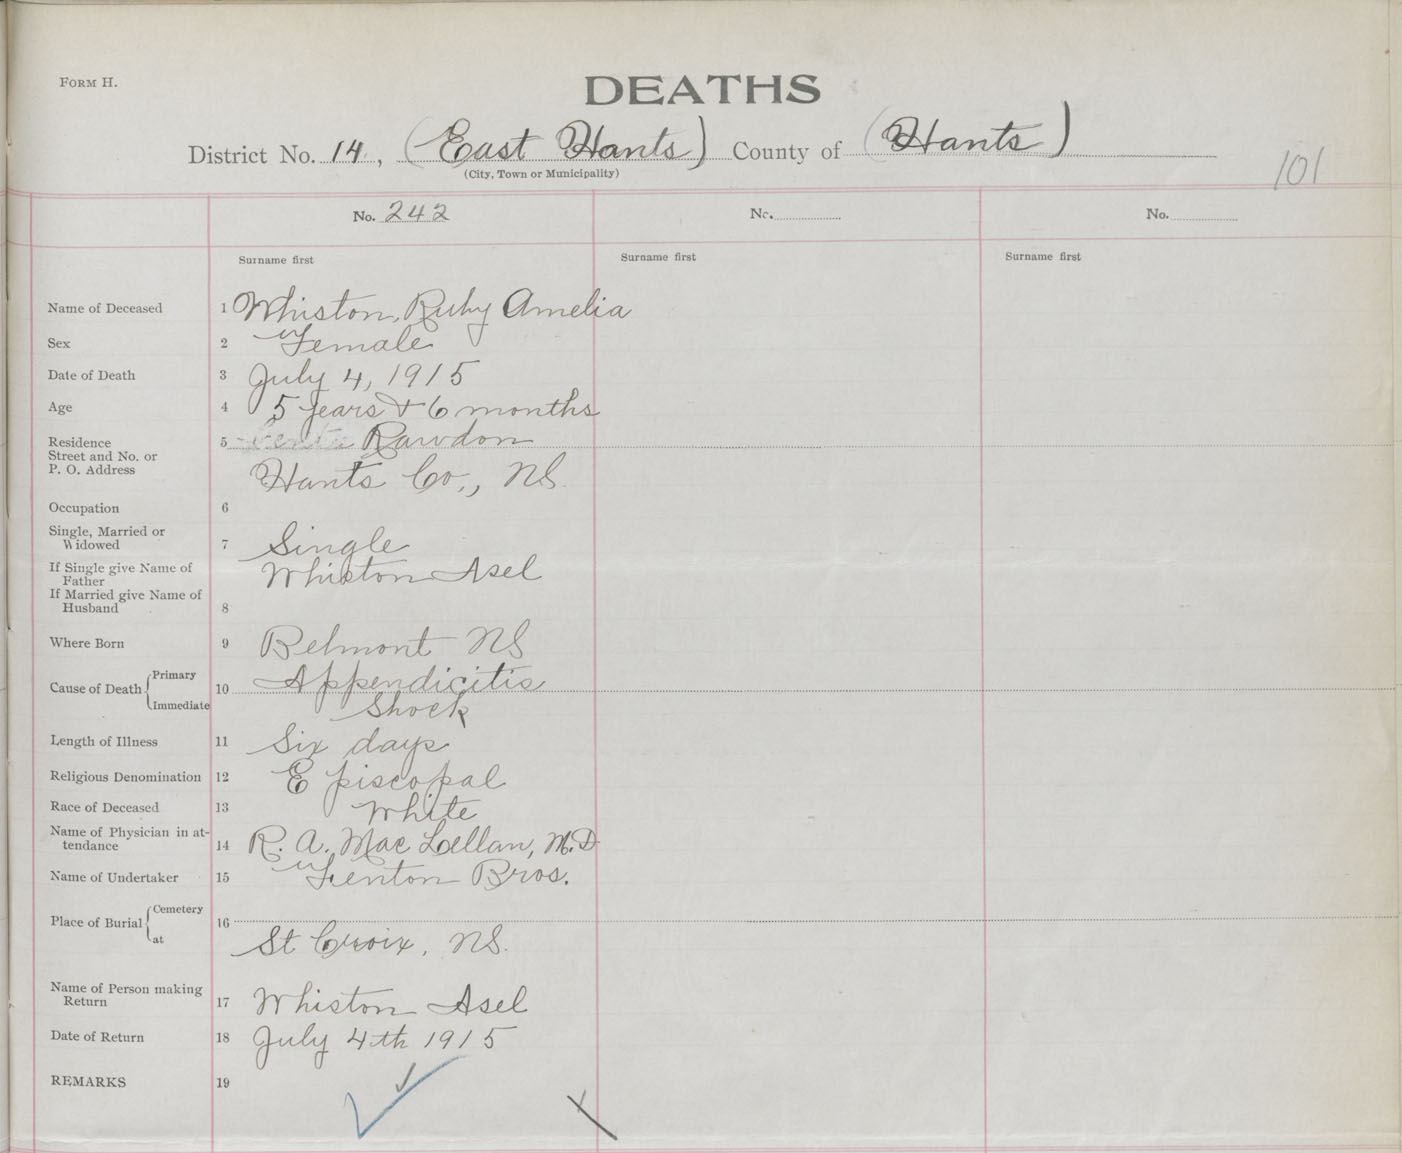 FORM H.
DEATHS
District No. 14, (East Hants) County of (Hants)
(City, Town or Municipality)
101
No. 242 No. No.
Surname first Surname first Surname first
Name of Deceased 1 Whiston, Ruby Amelia
Sex 2 Female
Date of Death 3 July 4, 1915
Age 4 5 years & 6 months
Residence 5 Rawdon
Street and No. or
P. O. Address Hants Co., NS.
Occupation 6
Single, Married or
Widowed 7 Single
If Single give Name of
Father Whiston Asel
If Married give Name of
Husband 8
Where Born 9 Belmont NS
Cause of Death Primary 10 Appendicitis
Immediate Shock
Length of Illness 11 Six days
Religious Denomination 12 Episcopal
Race of Deceased 13 White
Name of Physician in at-
tendance 14 R. A. Mac Lellan, M.D.
Name of Undertaker 15 Fenton Bros.
Place of Burial Cemetery 16
at St Croix, NS.
Name of Person making
Return 17 Whiston Asel
Date of Return 18 July 4th 1915
REMARKS 19